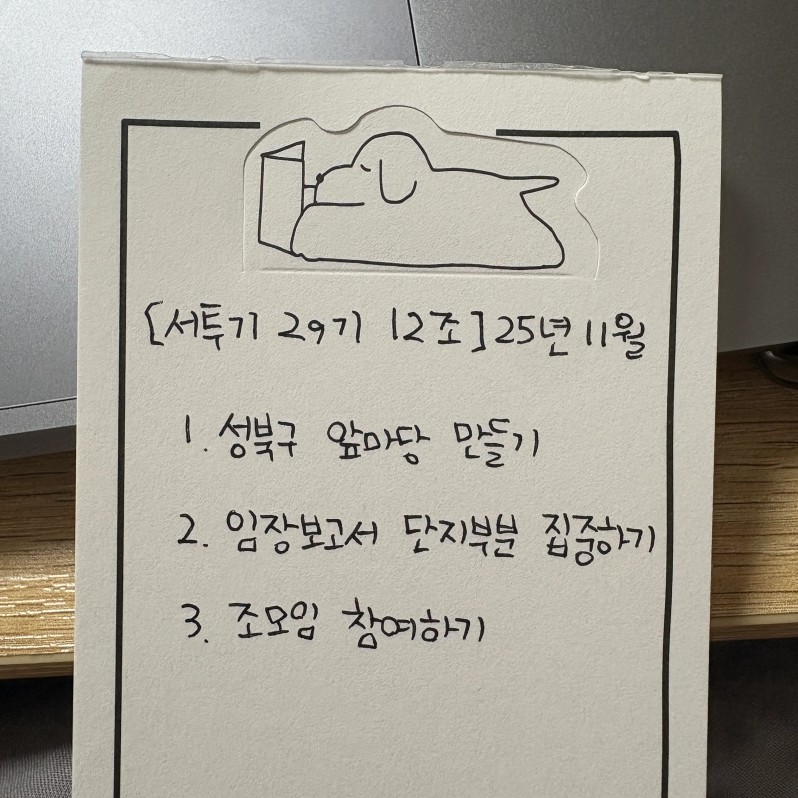 [서투기 29기 12조] 25년 11월
1. 성북구 앞마당 만들기
2. 임장보고서 단지부분 집중하기
3. 조모임 참여하기